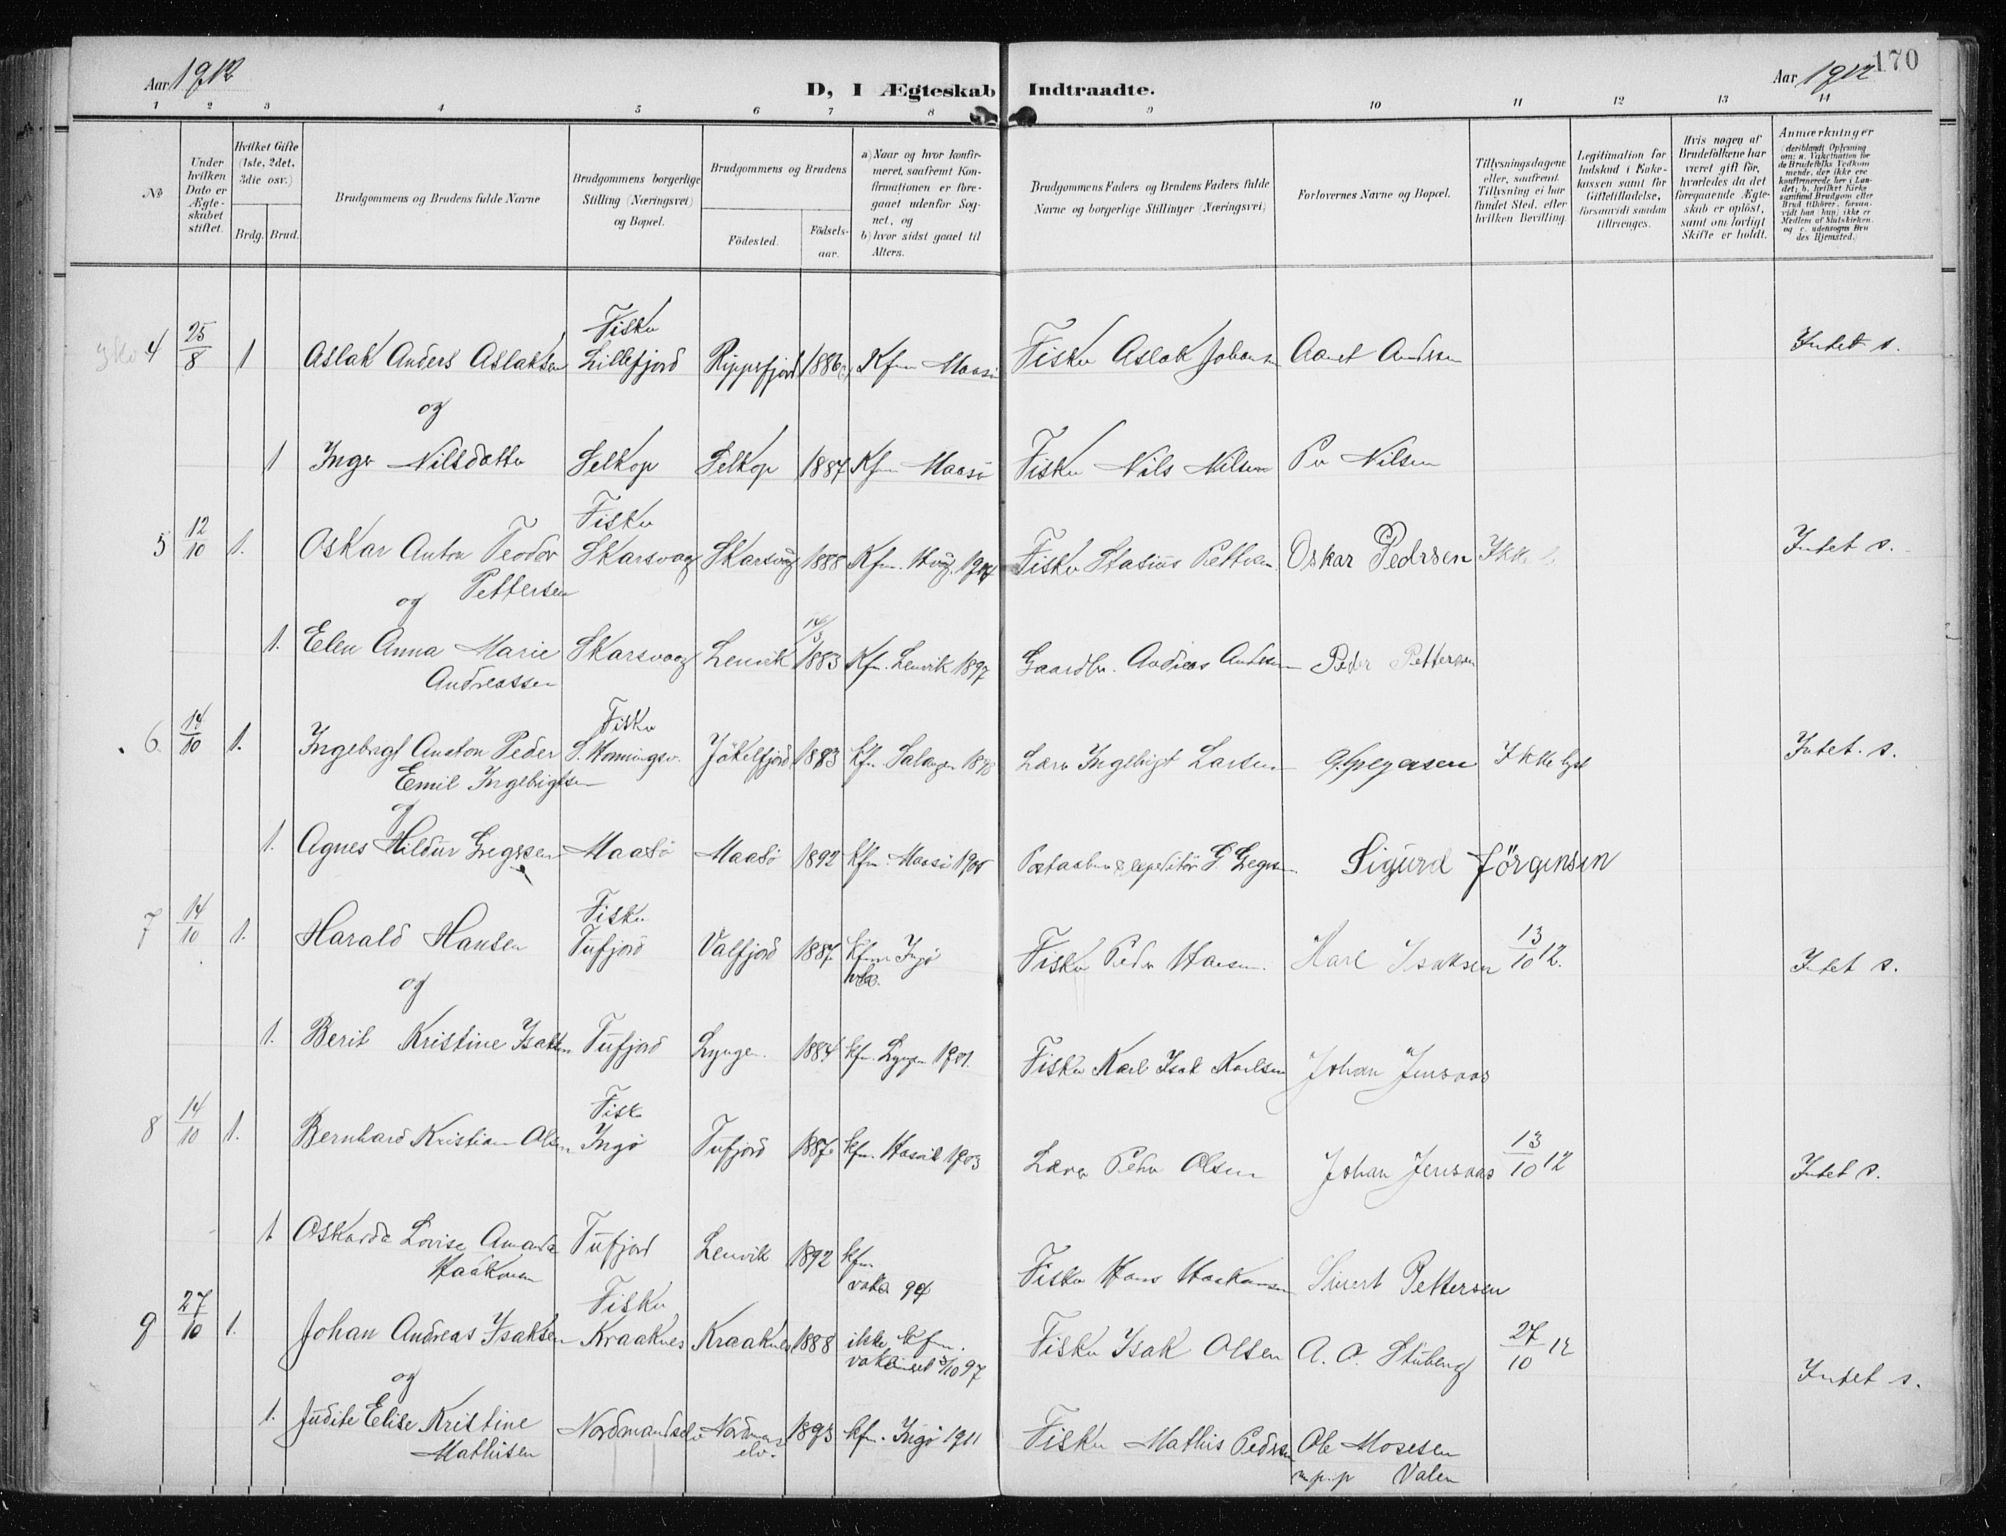 Aar 1912
D, I Ægteskab Indtraadte.
Aar 1912
170
1 2 3 4 5 6 7 8 9 10 11 12 13 14
No
Under hvilken Dato er Ægteskabet stiftet.
Hvilket Gifte (1ste, 2det, 3die osv.)
Brdg. Brud.
Brudgommens og Brudens fulde Navne
Brudgommens borgerlige Stilling (Næringsvei) og Bopæl.
Brudgommens og Brudens
Födested.
Födsels-aar.
a) Naar og hvor konfirmeret, saafremt Konfirmationen er foregaaet udenfor Sognet, og
b) hvor sidst gaaet til Alters.
Brudgommens Faders og Brudens Faders fulde Navne og borgerlige Stillinger (Næringsvei)
Forlovernes Navne og Bopæl.
Tillysningsdagene eller, saafremt Tillysning ei har fundet Sted, efter hvilken Bevilling.
Legitimation for Indskud i Enkekassen samt for Giftetilladelse, forsaavidt saadan tiltrænges.
Hvis nogen af Brudefolkene har været gift før, hvorledes da det foregaaende Ægteskab er oplöst, samt om lovligt Skifte er holdt.
Anmærkninger (deriblandt Oplysning om: a. Vakcination for de Brudefolks Vedkommende, der ikke ere konfirmerede her i Landet; b. hvilket Kirkesamfund Brudgom eller Brud tilhörer, forsaavidt han (hun) ikke er Medlem af Statskirken, og c. udensogns Brudes Hjemsted.)
4 25/8 1 Aslak Anders Aslaksen Fisker Lillefjord Rippefjord 1886 Kfm Maasö Fisker Aslak Johansen Aanet Andersen Intet s.
og
1 Inger Nilsdatter Selkop Selkop 1887 Kfm Maasö Fisker Nils Nilsen Per Nilsen
5 12/10 1. Oskar Anton Teodor Pettersen Fisker Skarsvaag Skarsvåg 1888 Kfm. 1904 Fisker Stasius Pettersen Oskar Pedersen Ikke Intet s.
og
1. Elen Anna Marie Andreassen Skarsvaag Lenvik 14/3 1883 Kfm. Lenvik 1897 Gaardbr. Andreas Andersen Peder Pettersen
6 14/10 1. Ingebrigt Anston Peder Emil Ingebrigtsen Fisker S. Honningsv. Jökelfjord 1883 kfm Salangen 1898 Lærer Ingebrigt Larsen G. Gregersen Ikke lyst Intet. s.
og
1. Agnes Hildur Gregersen Maasö Maasö 1892 kfm. Maasö Postaabner & expeditör G. Gregersen Sigurd Jörgensen
7 14/10 1. Harald Hansen Fisker Tufjord Valfjord 1887 kfm Ingö Fisker Peder Hansen. Karl Isaksen 13/10 12. Intet s.
og
1. Berit Kristine Isaksen Tufjord Lyngen. 1884 kfm. Lyngen 1901. Fisker Karl Isak Karlsen Johan Jensaas
8 14/10 1. Bernhard Kristian Olsen Fisk Ingö Tufjord 1887 kfm. Hasvik 1903 Lærer Peder Olsen Johan Jensaas 13/10 12 Intet s.
1 Oskarda Lovise Amanda Haakonsen Tufjord Lenvik 1892 kfm Fisker Hans Haakonsen Sivert Pettersen
9 27/10 1. Johan Andreas Isaksen Fisker Kraaknes Kraaknes 1888 ikke kfm. vakcineret 3/10 97 Fisker Isak Olsen A. O. Stuberg 27/10 12 Intet s.
og
1. Judite Elise Kristine Mathisen Nordmandselv Nordmands elv. 1893 kfm. Ingö 1911 Fisker Mathis Pedersen Ole Mosesen
m.p.p Valen